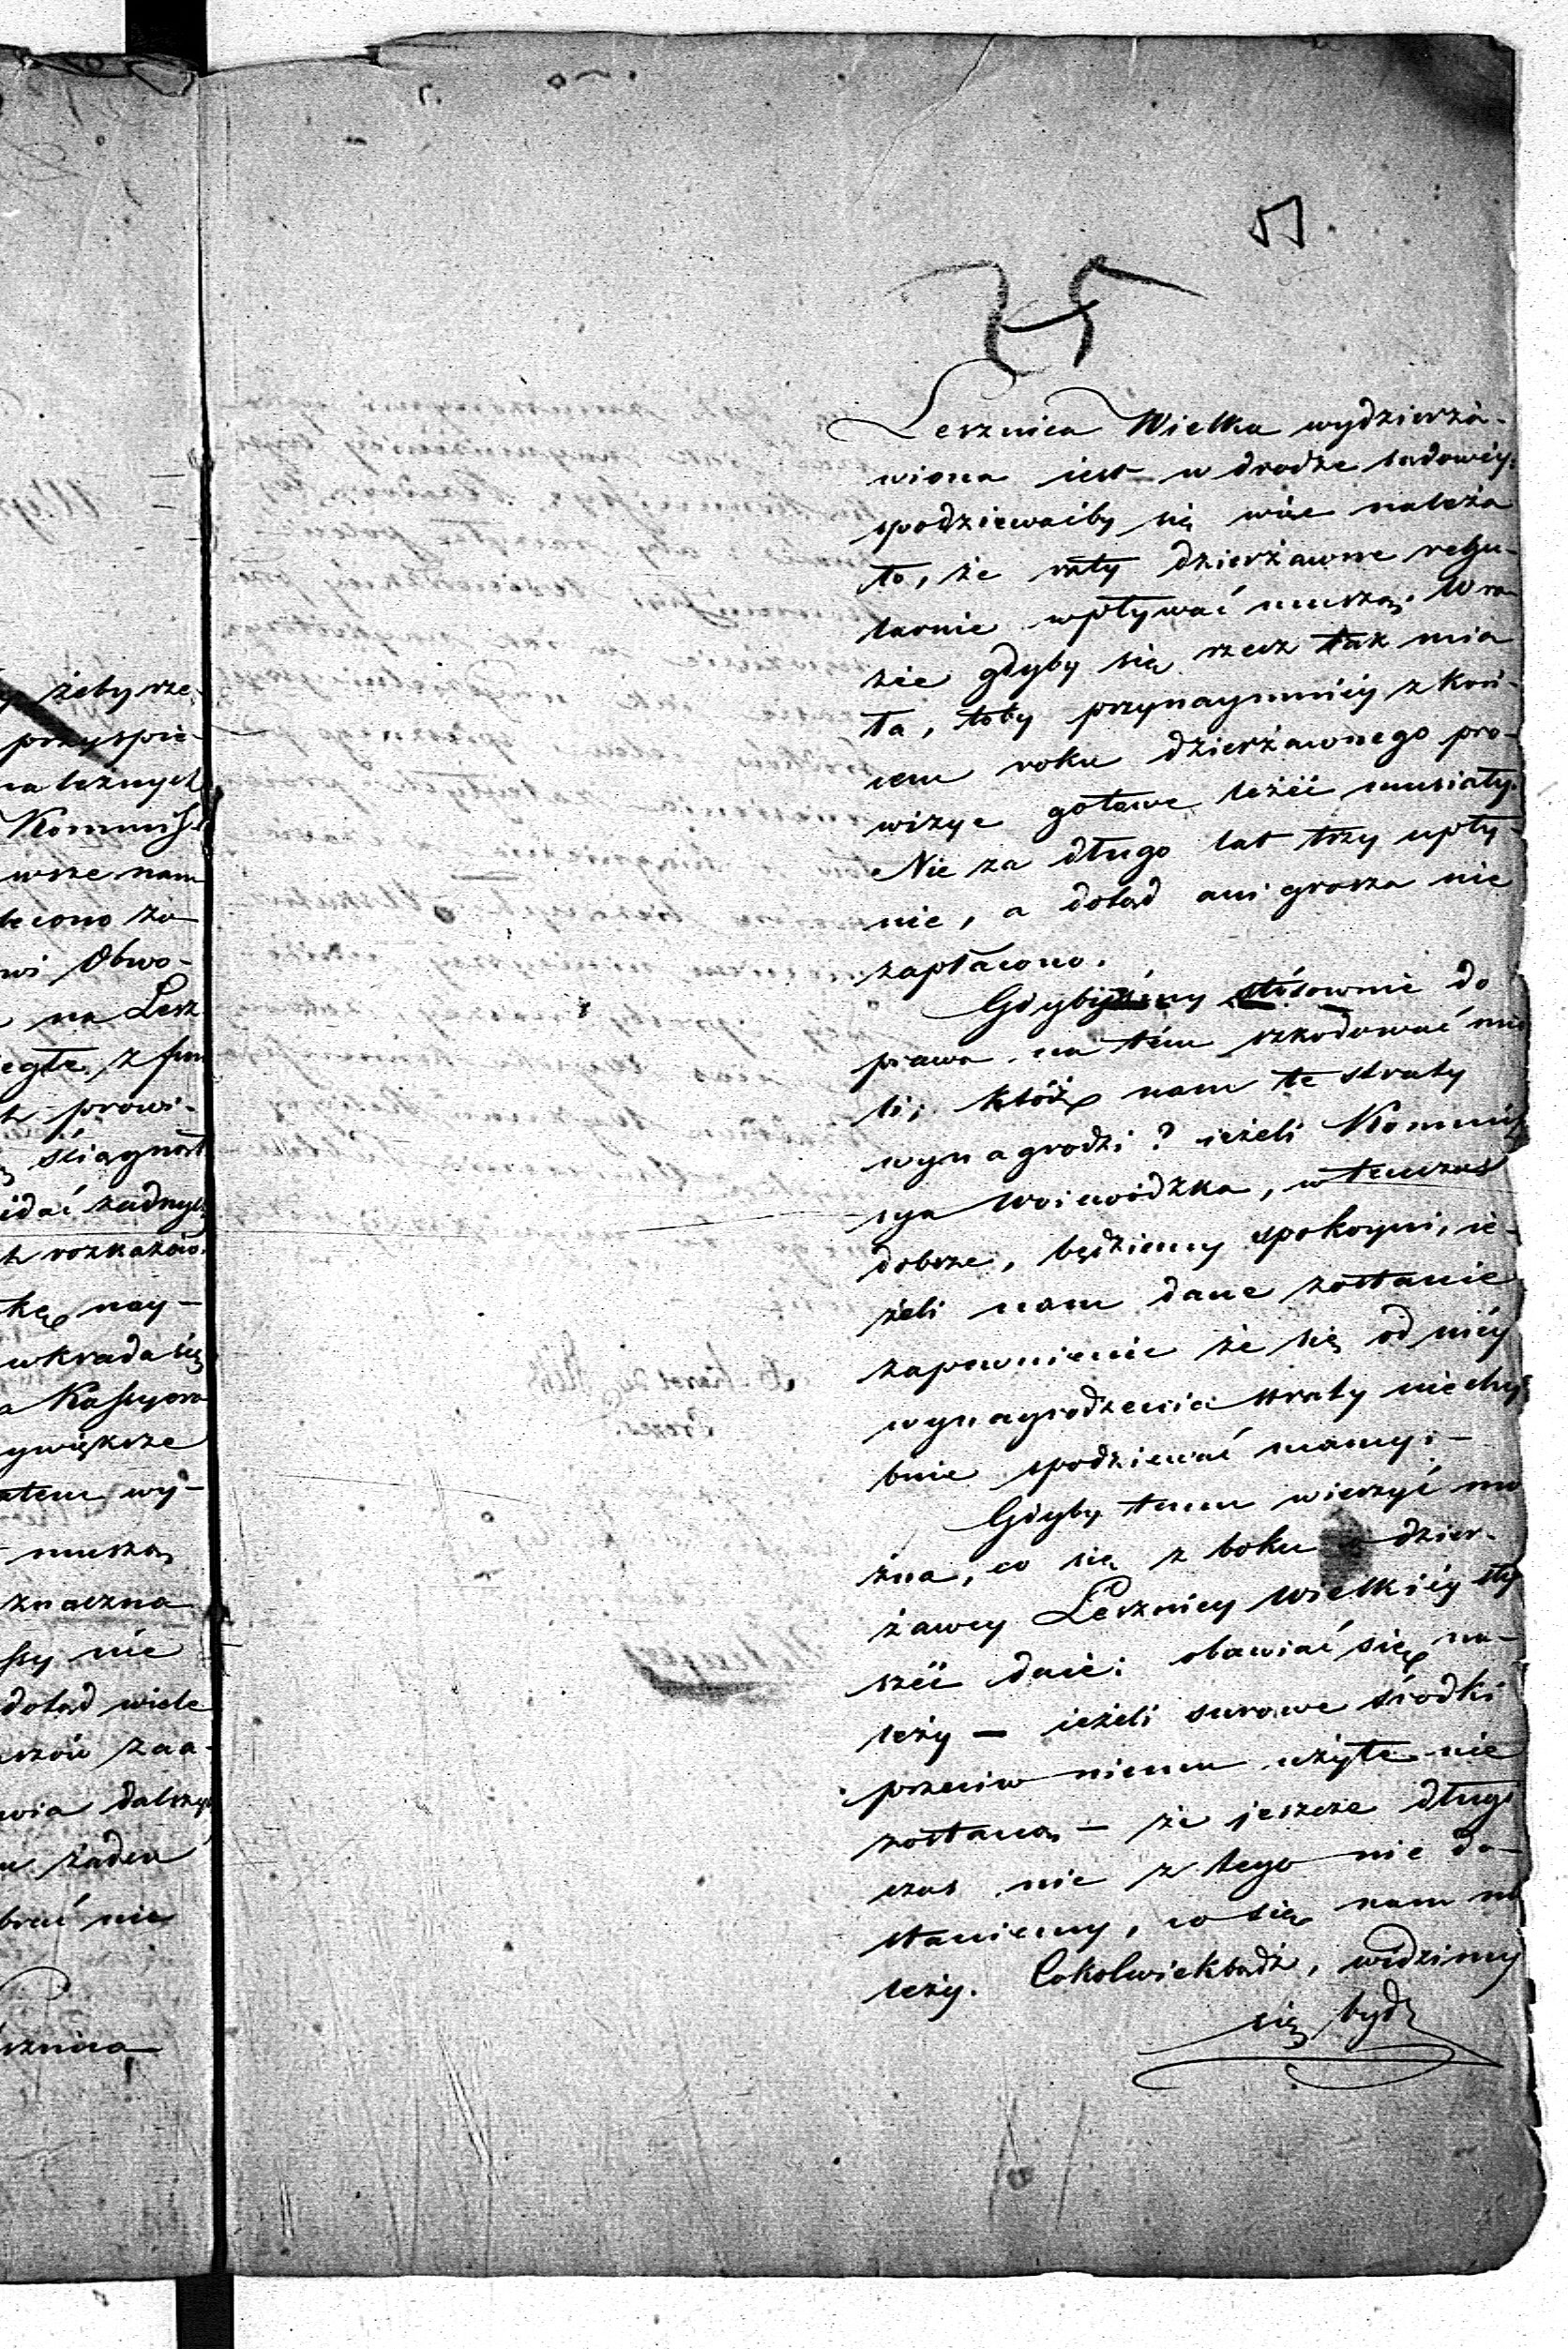 Lesznica Wielka wydzierża-
wiona iest w drodze sadowéy.
spodziewaćby się więc należa
ło, że raty dzierżawne regu-
larnie wpływać muszą. W ra-
zie gdyby się rzecz tak mia
ła, toby przynaymniéy z koń-
cem roku dzierżawnego pro-
wizye gotowe leżéć musiały.
Nie za długo lat trzy upły-
nie, a dotąd ani grosza nie
zapłacono.
Gdybyśmy stósownie do
prawa na tém szkodować mie
li, któż nam te straty
wynagrodzi? ieżeli Kommis
sya Woiewódzka, w tenczas
dobrze, będziemy spokoyni, ie-
żeli nam dane zostanie
zapewnienie że się od niéy
wynagrodzenia straty niechy
bnie spodziewać mamy. -
Gdyby temu wierzyć mo
żna, co się z boku o dzier-
żawcy Leszniсy Wielkiéy sły
széć daie: obawiać się na-
leży — ieżeli surowe środki
przeciw niemu użyte nie
zostaną — że jeszcze długi
czas nic z tego nie do-
staniemy, co się nam na
leży. Cokolwiekbądź, widzimy
się bydź
żeby rze-
przyspie-
należnych
Kommiss
wsze nam
lecono za
wi Obwo-
na Lesz
egłe z fun
prowi-
ściągnął
żadnych
rozkazów
nay-
wkrada się
Kassyera
ywiększe
atem wy-
muszą
znaczna
ssy nie
dotąd wiele
zaa-
wia dalszych
żaden
brać nie
sznica